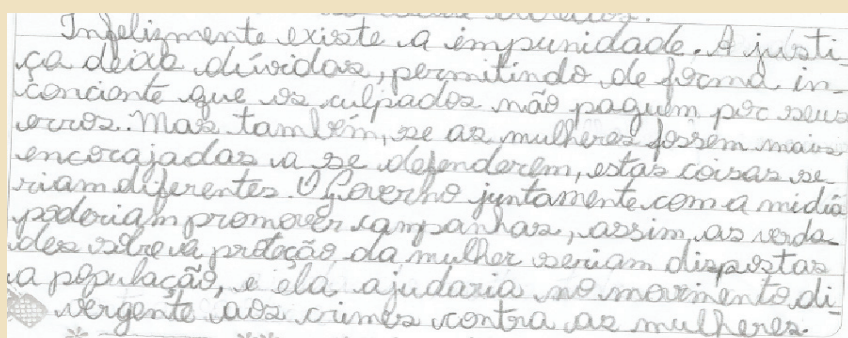 Infelizmente existe a impunidade. A justi-
ça deixa dúvidas, permitindo de forma in-
conciente que os culpados não paguem por seus
erros. Mas também, se as mulheres fossem mais
encorajadas a se defenderem, estas coisas se
riam diferentes. O Governo juntamente com a mídia
poderiam promover campanhas, assim, as verda
des sobre a proteção da mulher seriam dispostas
a população, e ela ajudaria no movimento di-
vergente aos crimes contra as mulheres.